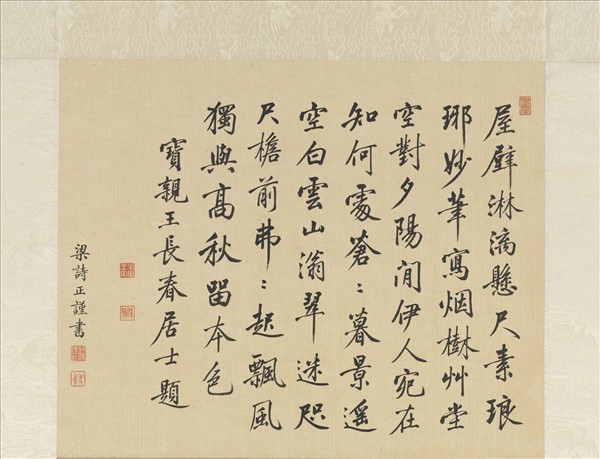 屋壁淋漓懸尺素琅
瑘妙筆寫烟樹艸堂
空對夕陽閒伊人宛在
知何處蒼〻暮景遥
空白雲山滃翠迷咫
尺檐前弗〻起飄風
獨與高秋留本色
寶親王長春居士題
梁詩正謹書